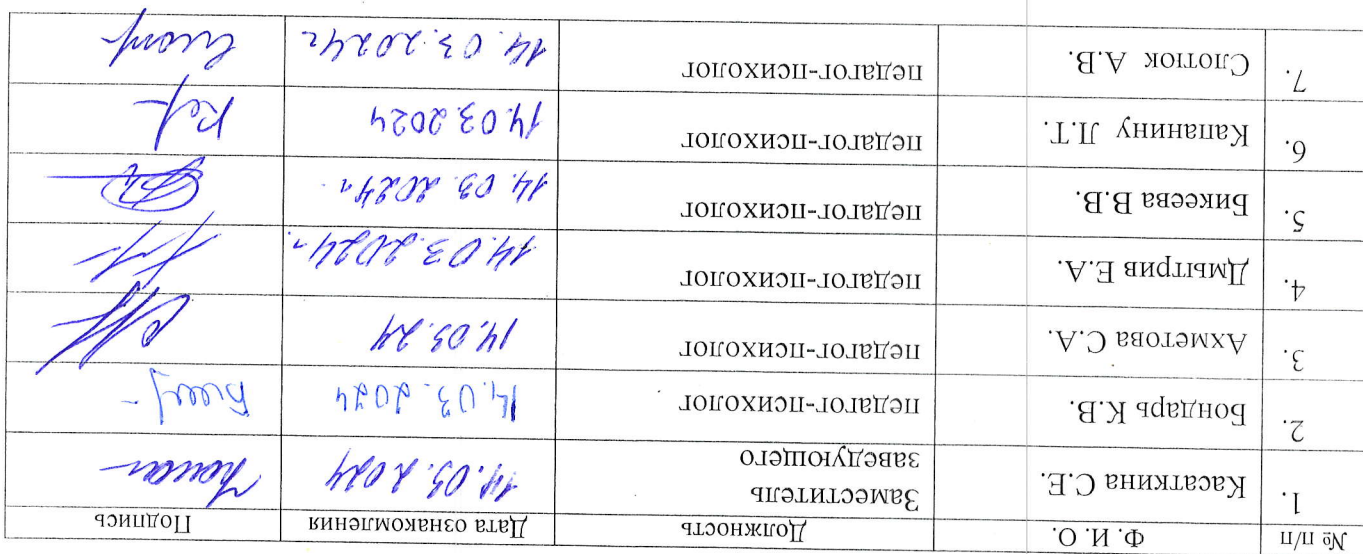 № п/п Ф. И О. Должность Дата ознакомления Подпись
1. Касаткина С.Е. Заместитель заведующего 14.03.2024
2. Бондарь К.В. педагог-психолог 14.03.2024
3. Ахметова С.А. педагог-психолог 14.03.24
4. Дмытрив Е.А. педагог-психолог 14.03.2024г.
5. Бикеева В.В. педагог-психолог 14.03.2024г.
6. Капанину Л.Т. педагог-психолог 14.03.2024
7. Слотюк А.В. педагог-психолог 14.03.2024г